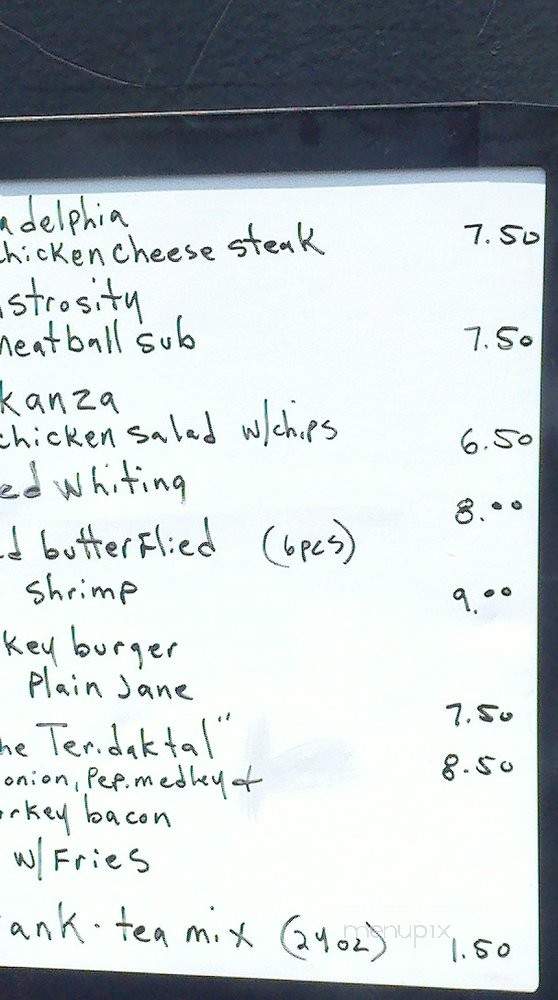 adelphia
hicken cheese steak 7.50
strosity
eatball sub 7.50
kanza
chicken salad w/chips 6.50
ed Whiting 8.00
d butterflied (6pcs)
shrimp 9.00
key burger
Plain Jane 7.50
he Teridaktal"
onion, Pep. medley + 8.50
rkey bacon
w/Fries
ank - tea mix (24oz) 1.50
menupix